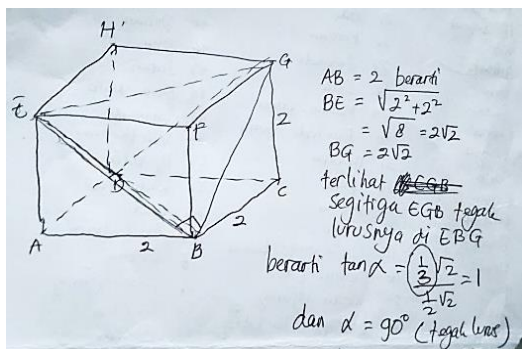 H'
E
G
F
2
D
C
A
2
B
2
AB = 2 berarti
BE = √2²+2²
= √8 = 2√2
BG = 2√2
terlihat EGB
segitiga EGB tegak
lurusnya di EBG
berarti tan α = 1/3 √2 / 1/2 √2 = 1
dan α = 90° (tegak lurus)